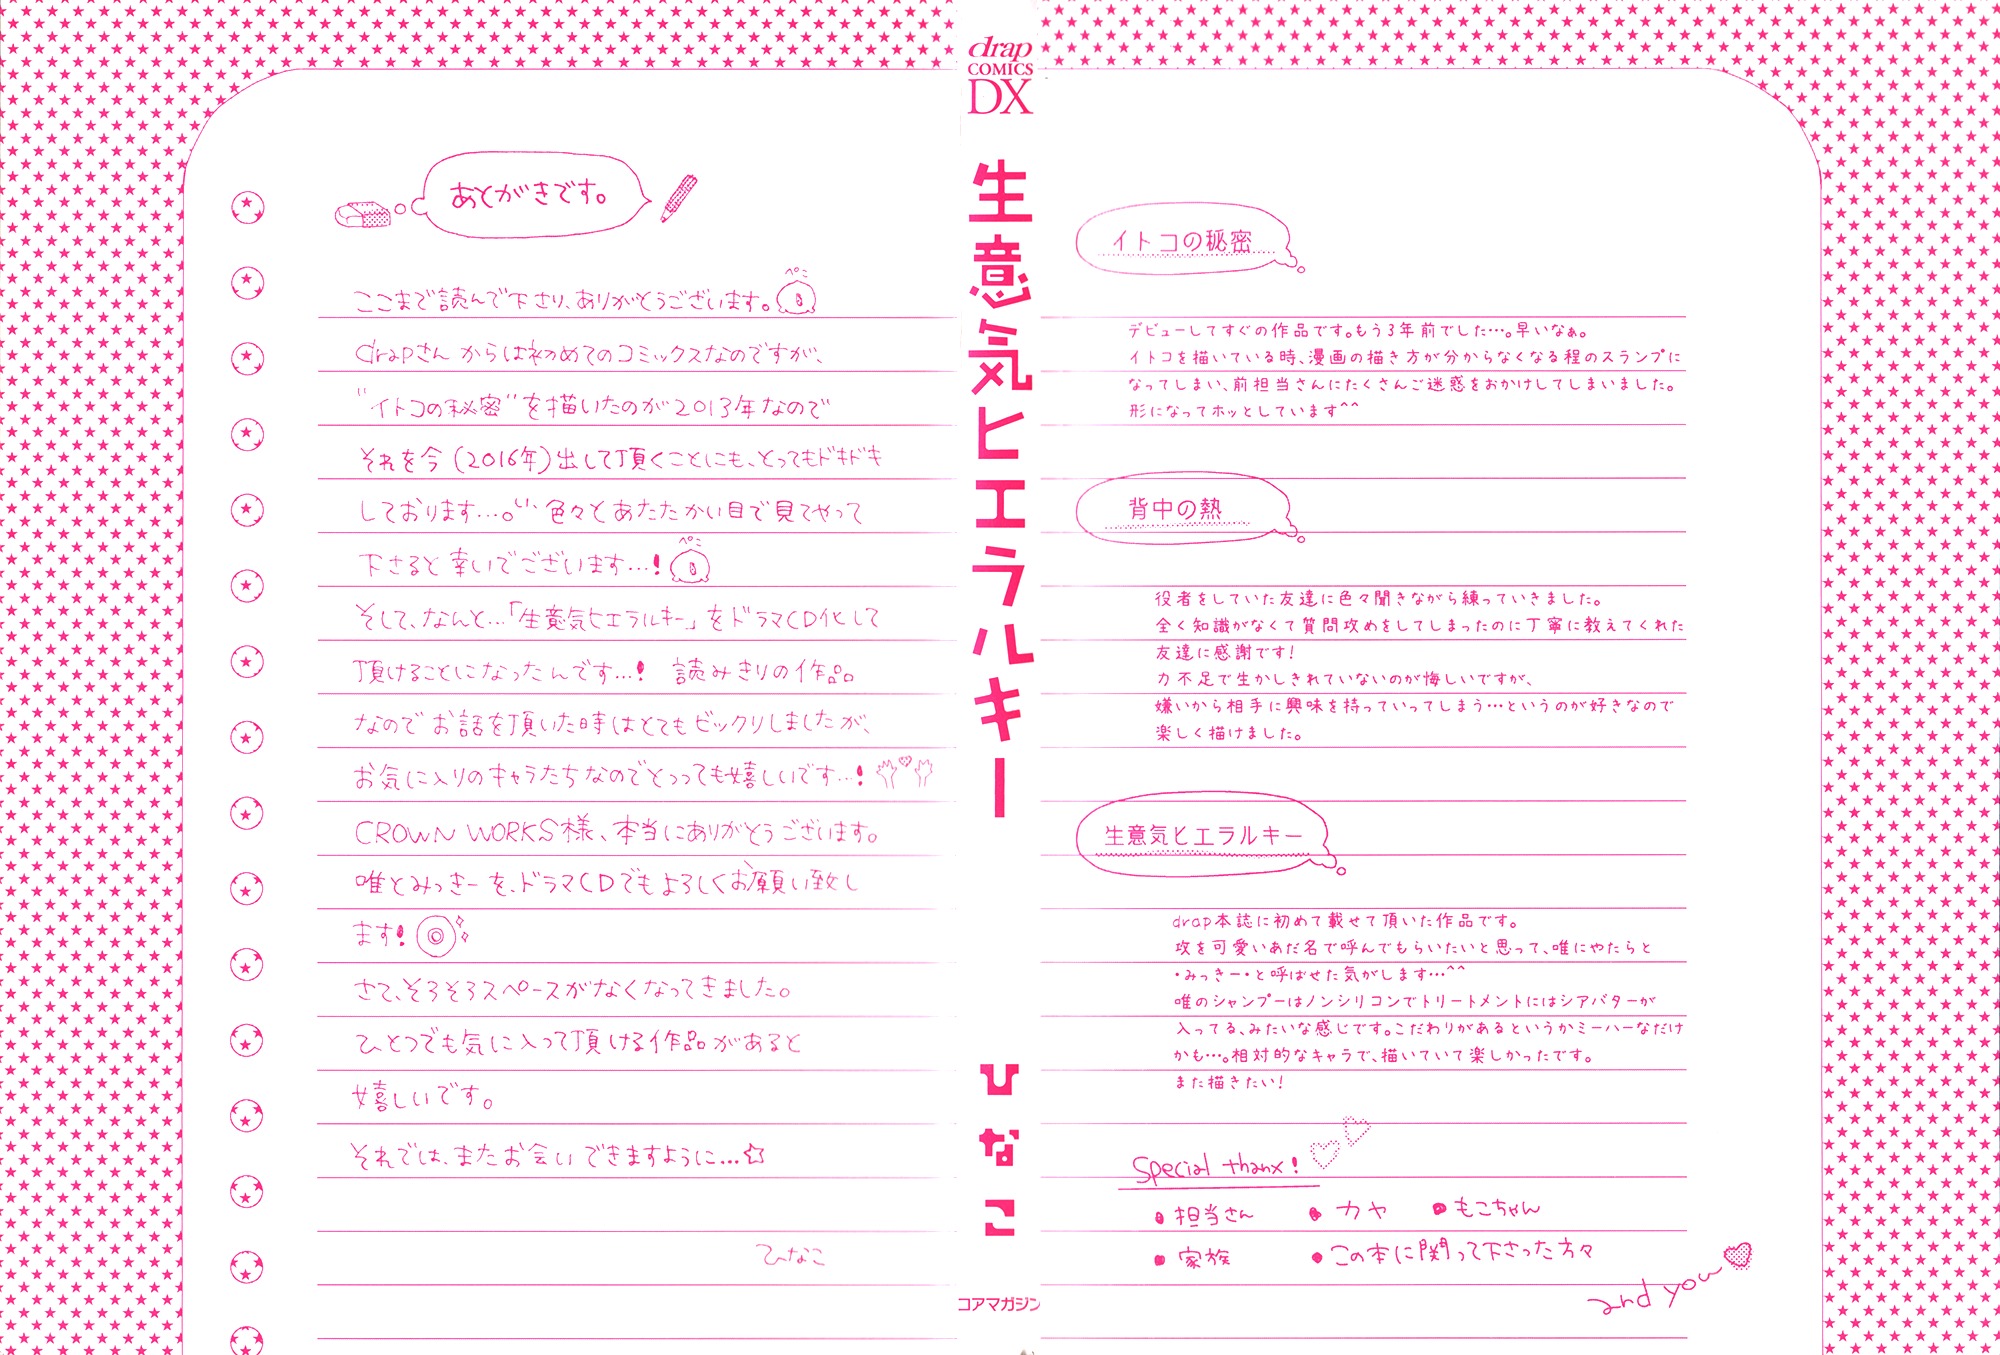 あとがきです。
ここまで読んで下さり、ありがとうございます。
ぺこ
drapさんからは初めてのコミックスなのですが、
"イトコの秘密"を描いたのが2013年なので
それを今(2016年)出して頂くことにも、とってもドキドキ
しております…。色々とあたたかい目で見てやって
下さると幸いでございます…!
ぺこ
そして、なんと…「生意気ヒエラルキー」をドラマCD化して
頂けることになったんです…! 読みきりの作品
なのでお話を頂いた時はとてもビックリしましたが、
お気に入りのキャラたちなのでとっっても嬉しいです…!
CROWN WORKS様、本当にありがとうございます。
唯とみっきーを、ドラマCDでもよろしくお願い致し
ます!
さて、そろそろスペースがなくなってきました。
ひとつでも気に入って頂ける作品があると
嬉しいです。
それでは、またお会いできますように…☆
ひなこ
drap
COMICS
DX
生意気ヒエラルキー
ひなこ
コアマガジン
イトコの秘密
デビューしてすぐの作品です。もう3年前でした…。早いなぁ。
イトコを描いている時、漫画の描き方が分からなくなる程のスランプに
なってしまい、前担当さんにたくさんご迷惑をおかけしてしまいました。
形になってホッとしています^^
背中の熱
役者をしていた友達に色々聞きながら練っていきました。
全く知識がなくて質問攻めをしてしまったのに丁寧に教えてくれた
友達に感謝です!
力不足で生かしきれていないのが悔しいですが、
嫌いから相手に興味を持っていってしまう…というのが好きなので
楽しく描けました。
生意気ヒエラルキー
drap本誌に初めて載せて頂いた作品です。
攻を可愛いあだ名で呼んでもらいたいと思って、唯にやたらと
・みっきー・と呼ばせた気がします…^^
唯のシャンプーはノンシリコンでトリートメントにはシアバターが
入ってる、みたいな感じです。こだわりがあるというかミーハーなだけ
かも…。相対的なキャラで、描いていて楽しかったです。
また描きたい!
Special thanx!
●担当さん ●カヤ ●もこちゃん
●家族 ●この本に関って下さった方々
and you